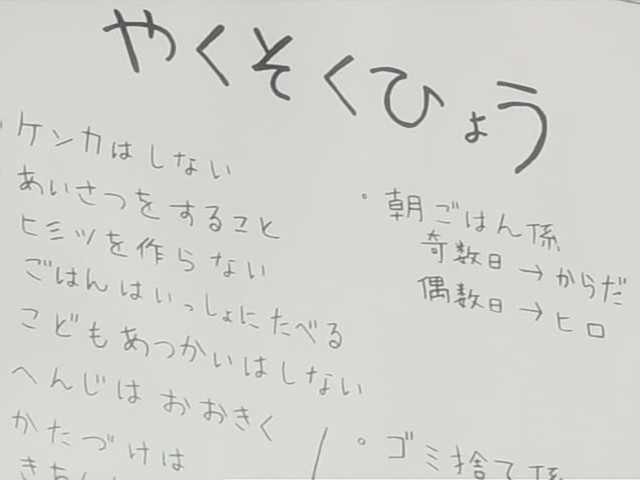 やくそくひょう
・ケンカはしない
あいさつをすること
ヒミツを作らない
ごはんはいっしょにたべる
こどもあつかいはしない
へんじはおおきく
かたづけは
・朝ごはん係
奇数日→からだ
偶数日→ヒロ
・ゴミ捨て係